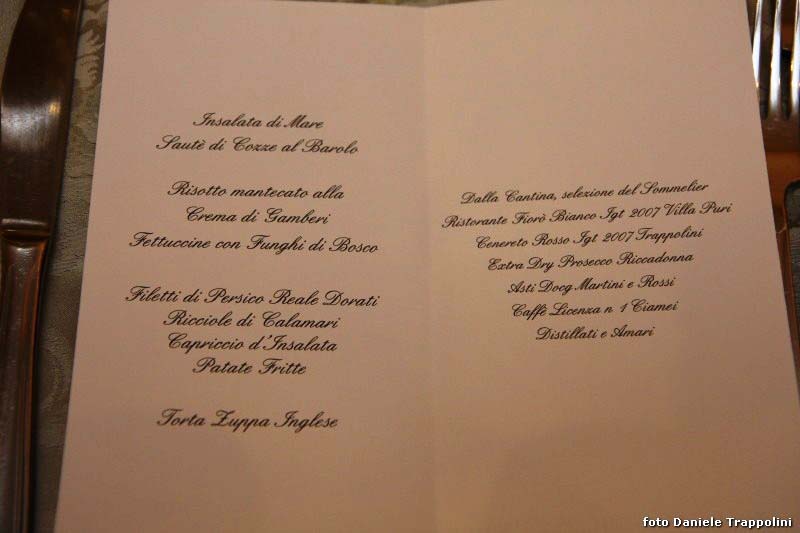 Insalata di Mare
Sautè di Cozze al Barolo
Risotto mantecato alla
Crema di Gamberi
Fettuccine con Funghi di Bosco
Filetti di Persico Reale Dorati
Ricciole di Calamari
Capriccio d'Insalata
Patate Fritte
Torta Zuppa Inglese
Dalla Cantina, selezione del Sommelier
Ristorante Fiorò Bianco Igt 2007 Villa Puri
Cenereto Rosso Igt 2007 Trappolini
Extra Dry Prosecco Riccadonna
Asti Docg Martini e Rossi
Caffè Licenza n 1 Ciamei
Distillati e Amari
foto Daniele Trappolini